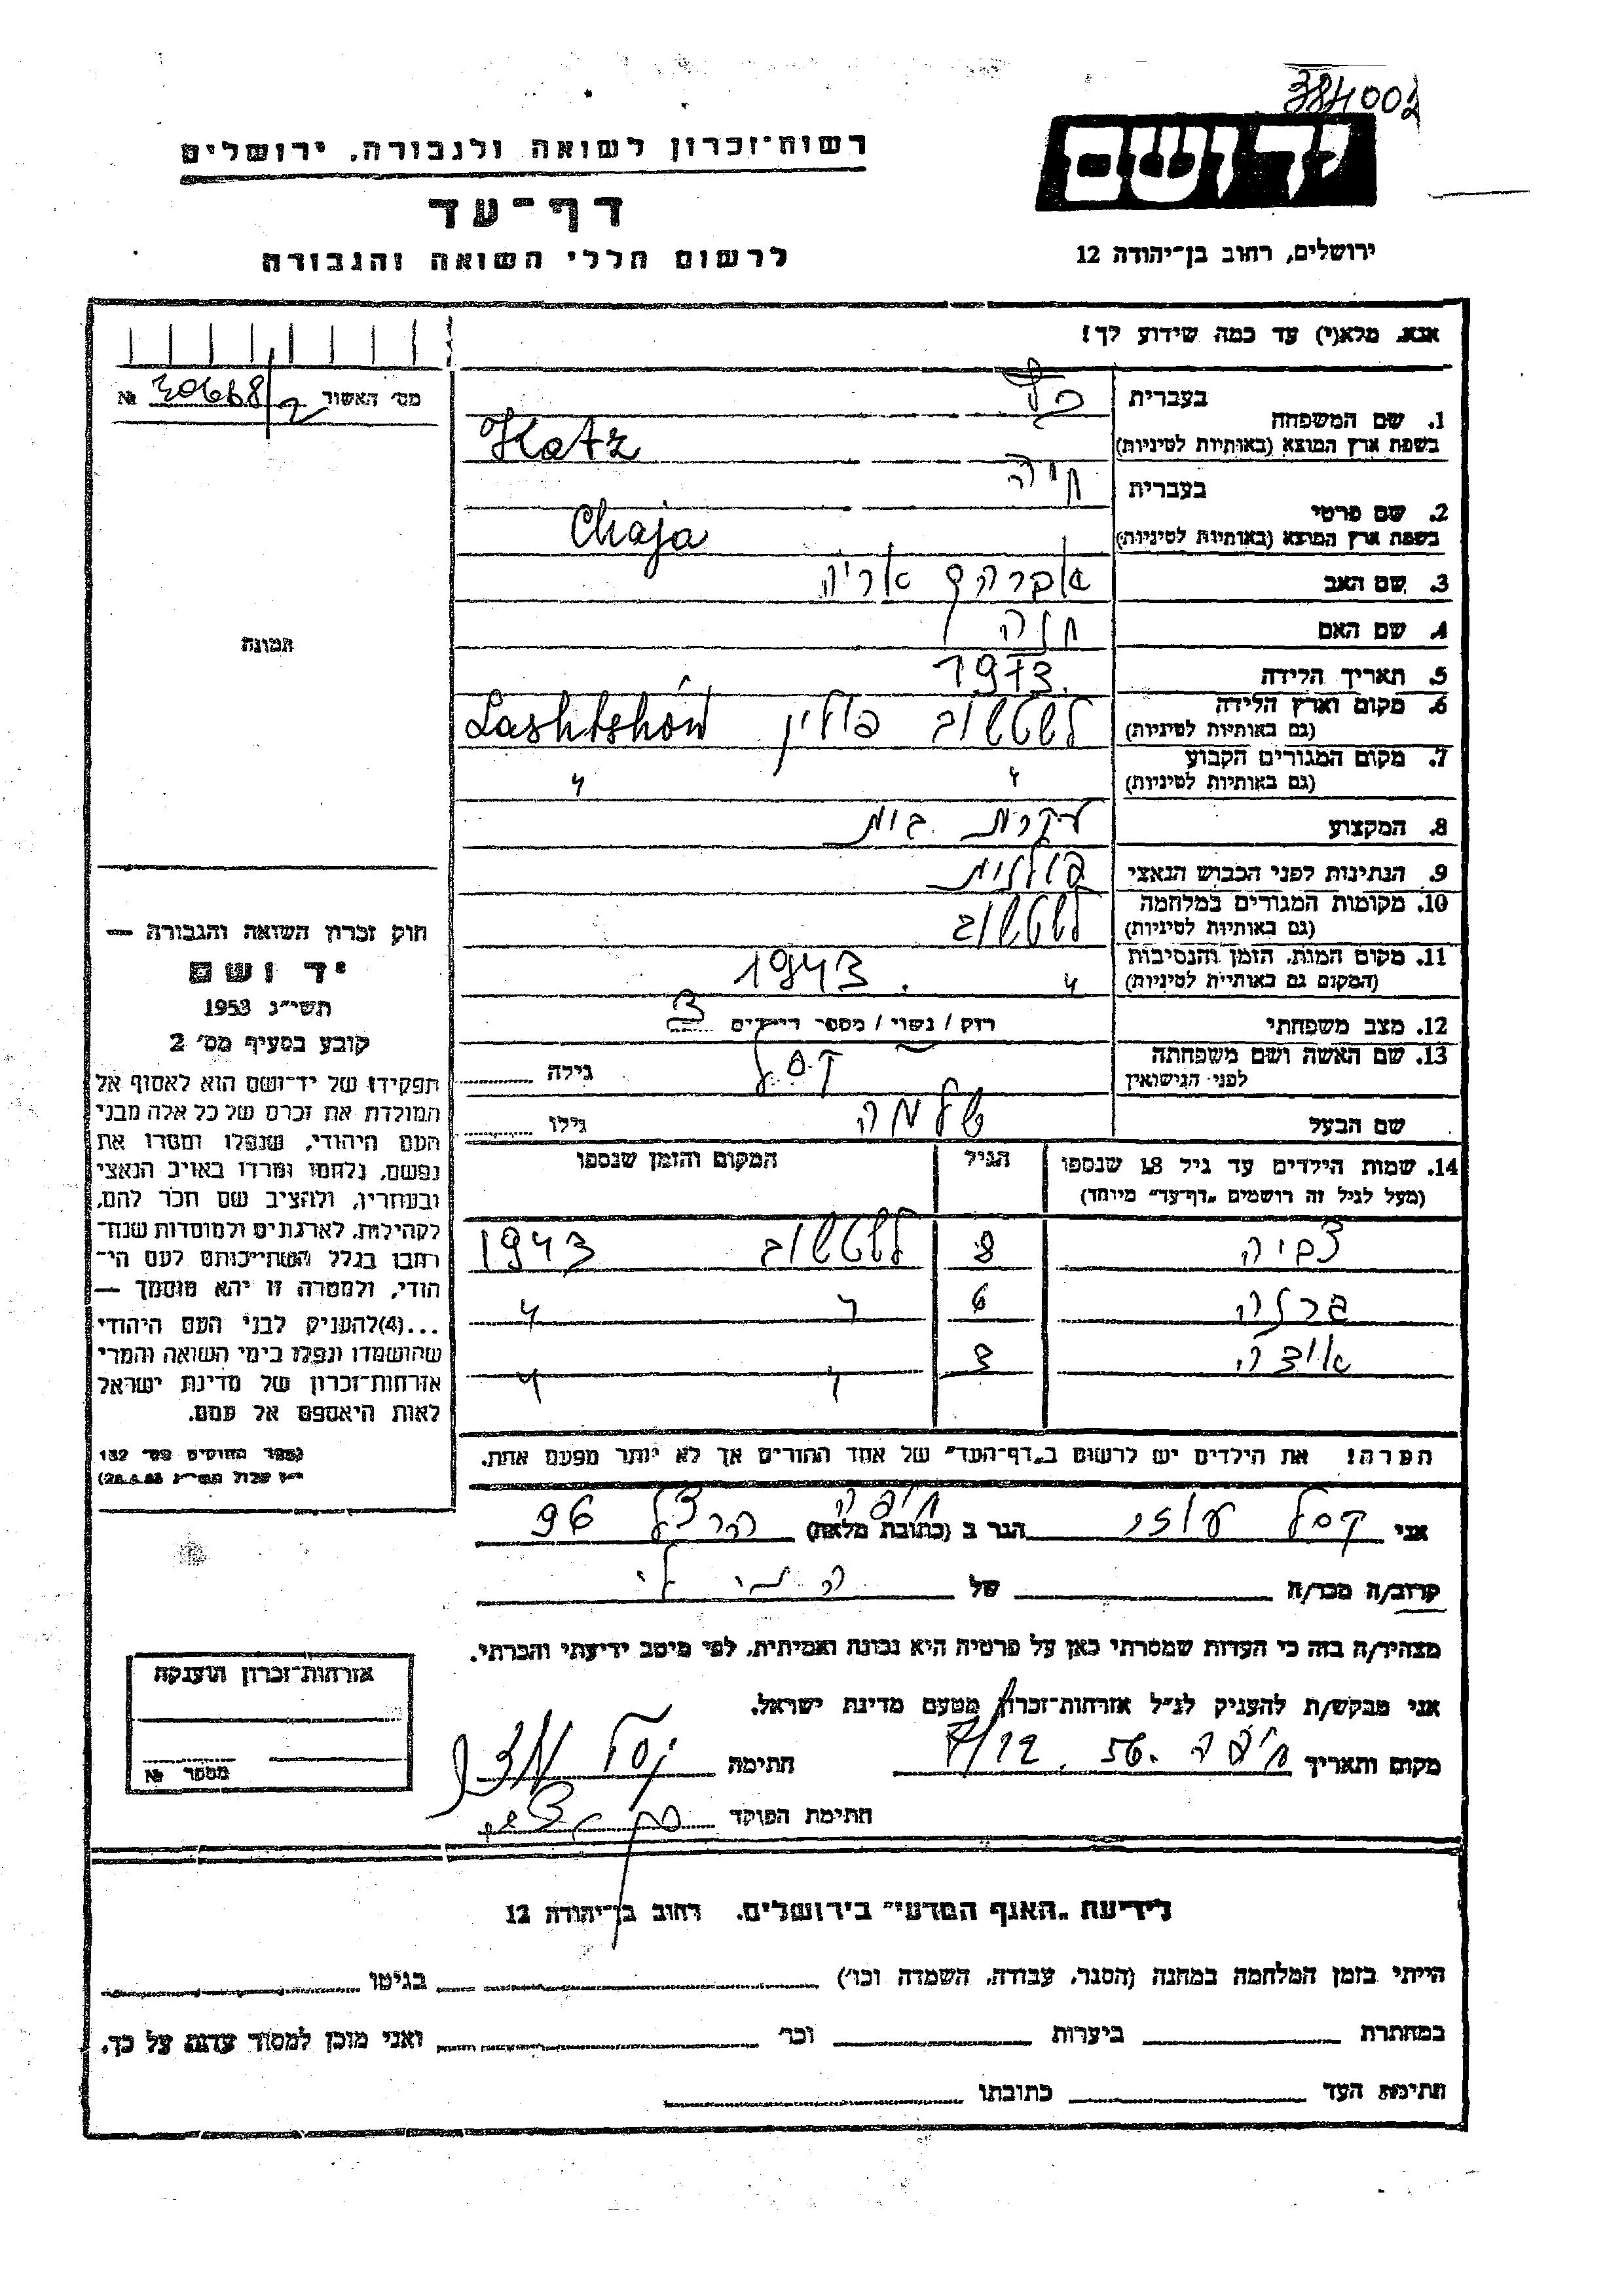 384002
רשות-זכרון לשואה ולגבורה, ירושלים
יד ושם
דף-עד
לרשום חללי השואה והגבורה
ירושלים, רחוב בן-יהודה 12
אנא, מלא(י) עד כמה שידוע לך!
מס' האשור 30668/2 №
1. שם המשפחה בעברית כץ
בשפת ארץ המוצא (באותיות לטיניות) Katz
2. שם פרטי בעברית חיה
בשפת ארץ המוצא (באותיות לטיניות) Chaja
3. שם האב אברהם אריה
4. שם האם חנה
5. תאריך הלידה 1913
6. מקום וארץ הלידה (גם באותיות לטיניות) לשטשוב פולין Lashtshów
7. מקום המגורים הקבוע (גם באותיות לטיניות) " "
8. המקצוע עקרת בית
9. הנתינות לפני הכבוש הנאצי פולנית
10. מקומות המגורים במלחמה (גם באותיות לטיניות) לשטשוב
11. מקום המות, הזמן והנסיבות (המקום גם באותיות לטיניות) " 1943
12. מצב משפחתי רווק / נשוי / מספר הילדים 3
13. שם האשה ושם משפחתה לפני הנישואין קסל גילה
שם הבעל שלמה גילו
14. שמות הילדים עד גיל 18 שנספו הגיל המקום והזמן שנספו
(מעל לגיל זה רושמים "דף-עד" מיוחד)
צביה 8 לשטשוב 1943
6 " "
3 " "
הערה! את הילדים יש לרשום ב"דף-העד" של אחד ההורים אך לא יותר מפעם אחת.
תמונה
חוק זכרון השואה והגבורה —
יד ושם
תשי"ג 1953
קובע בסעיף מס' 2
תפקידו של יד-ושם הוא לאסוף אל
המולדת את זכרם של כל אלה מבני
העם היהודי, שנפלו ומסרו את
נפשם, נלחמו ומרדו באויב הנאצי
ובעוזריו, ולהציב שם וזכר להם,
לקהילות, לארגונים ולמוסדות שנח-
רבו בגלל השתייכותם לעם הי-
הודי, ולמטרה זו יהא מוסמך —
...(4) להעניק לבני העם היהודי
שהושמדו ונפלו בימי השואה והמרי
אזרחות-זכרון של מדינת ישראל
לאות היאספם אל עמם.
(ספר החוקים מס' 132
אני קסל הגר ב (כתובת מלאה) חיפה הרצל 96
קרוב/ה מכר/ה של
מצהיר/ה בזה כי העדות שמסרתי כאן על פרטיה היא נכונה ואמיתית, לפי מיטב ידיעתי והכרתי.
אני מבקש/ת להעניק לנ"ל אזרחות-זכרון מטעם מדינת ישראל.
מקום ותאריך חיפה 56. חתימה קסל
חתימת הפוקד
אזרחות-זכרון הוענקה
מספר №
לידיעת "האגף המדעי" בירושלים, רחוב בן-יהודה 12
הייתי בזמן המלחמה במחנה (הסגר, עבודה, השמדה וכו') בגיטו
במחתרת ביערות וכו' ואני מוכן למסור עדות על כך.
חתימת העד כתובתו